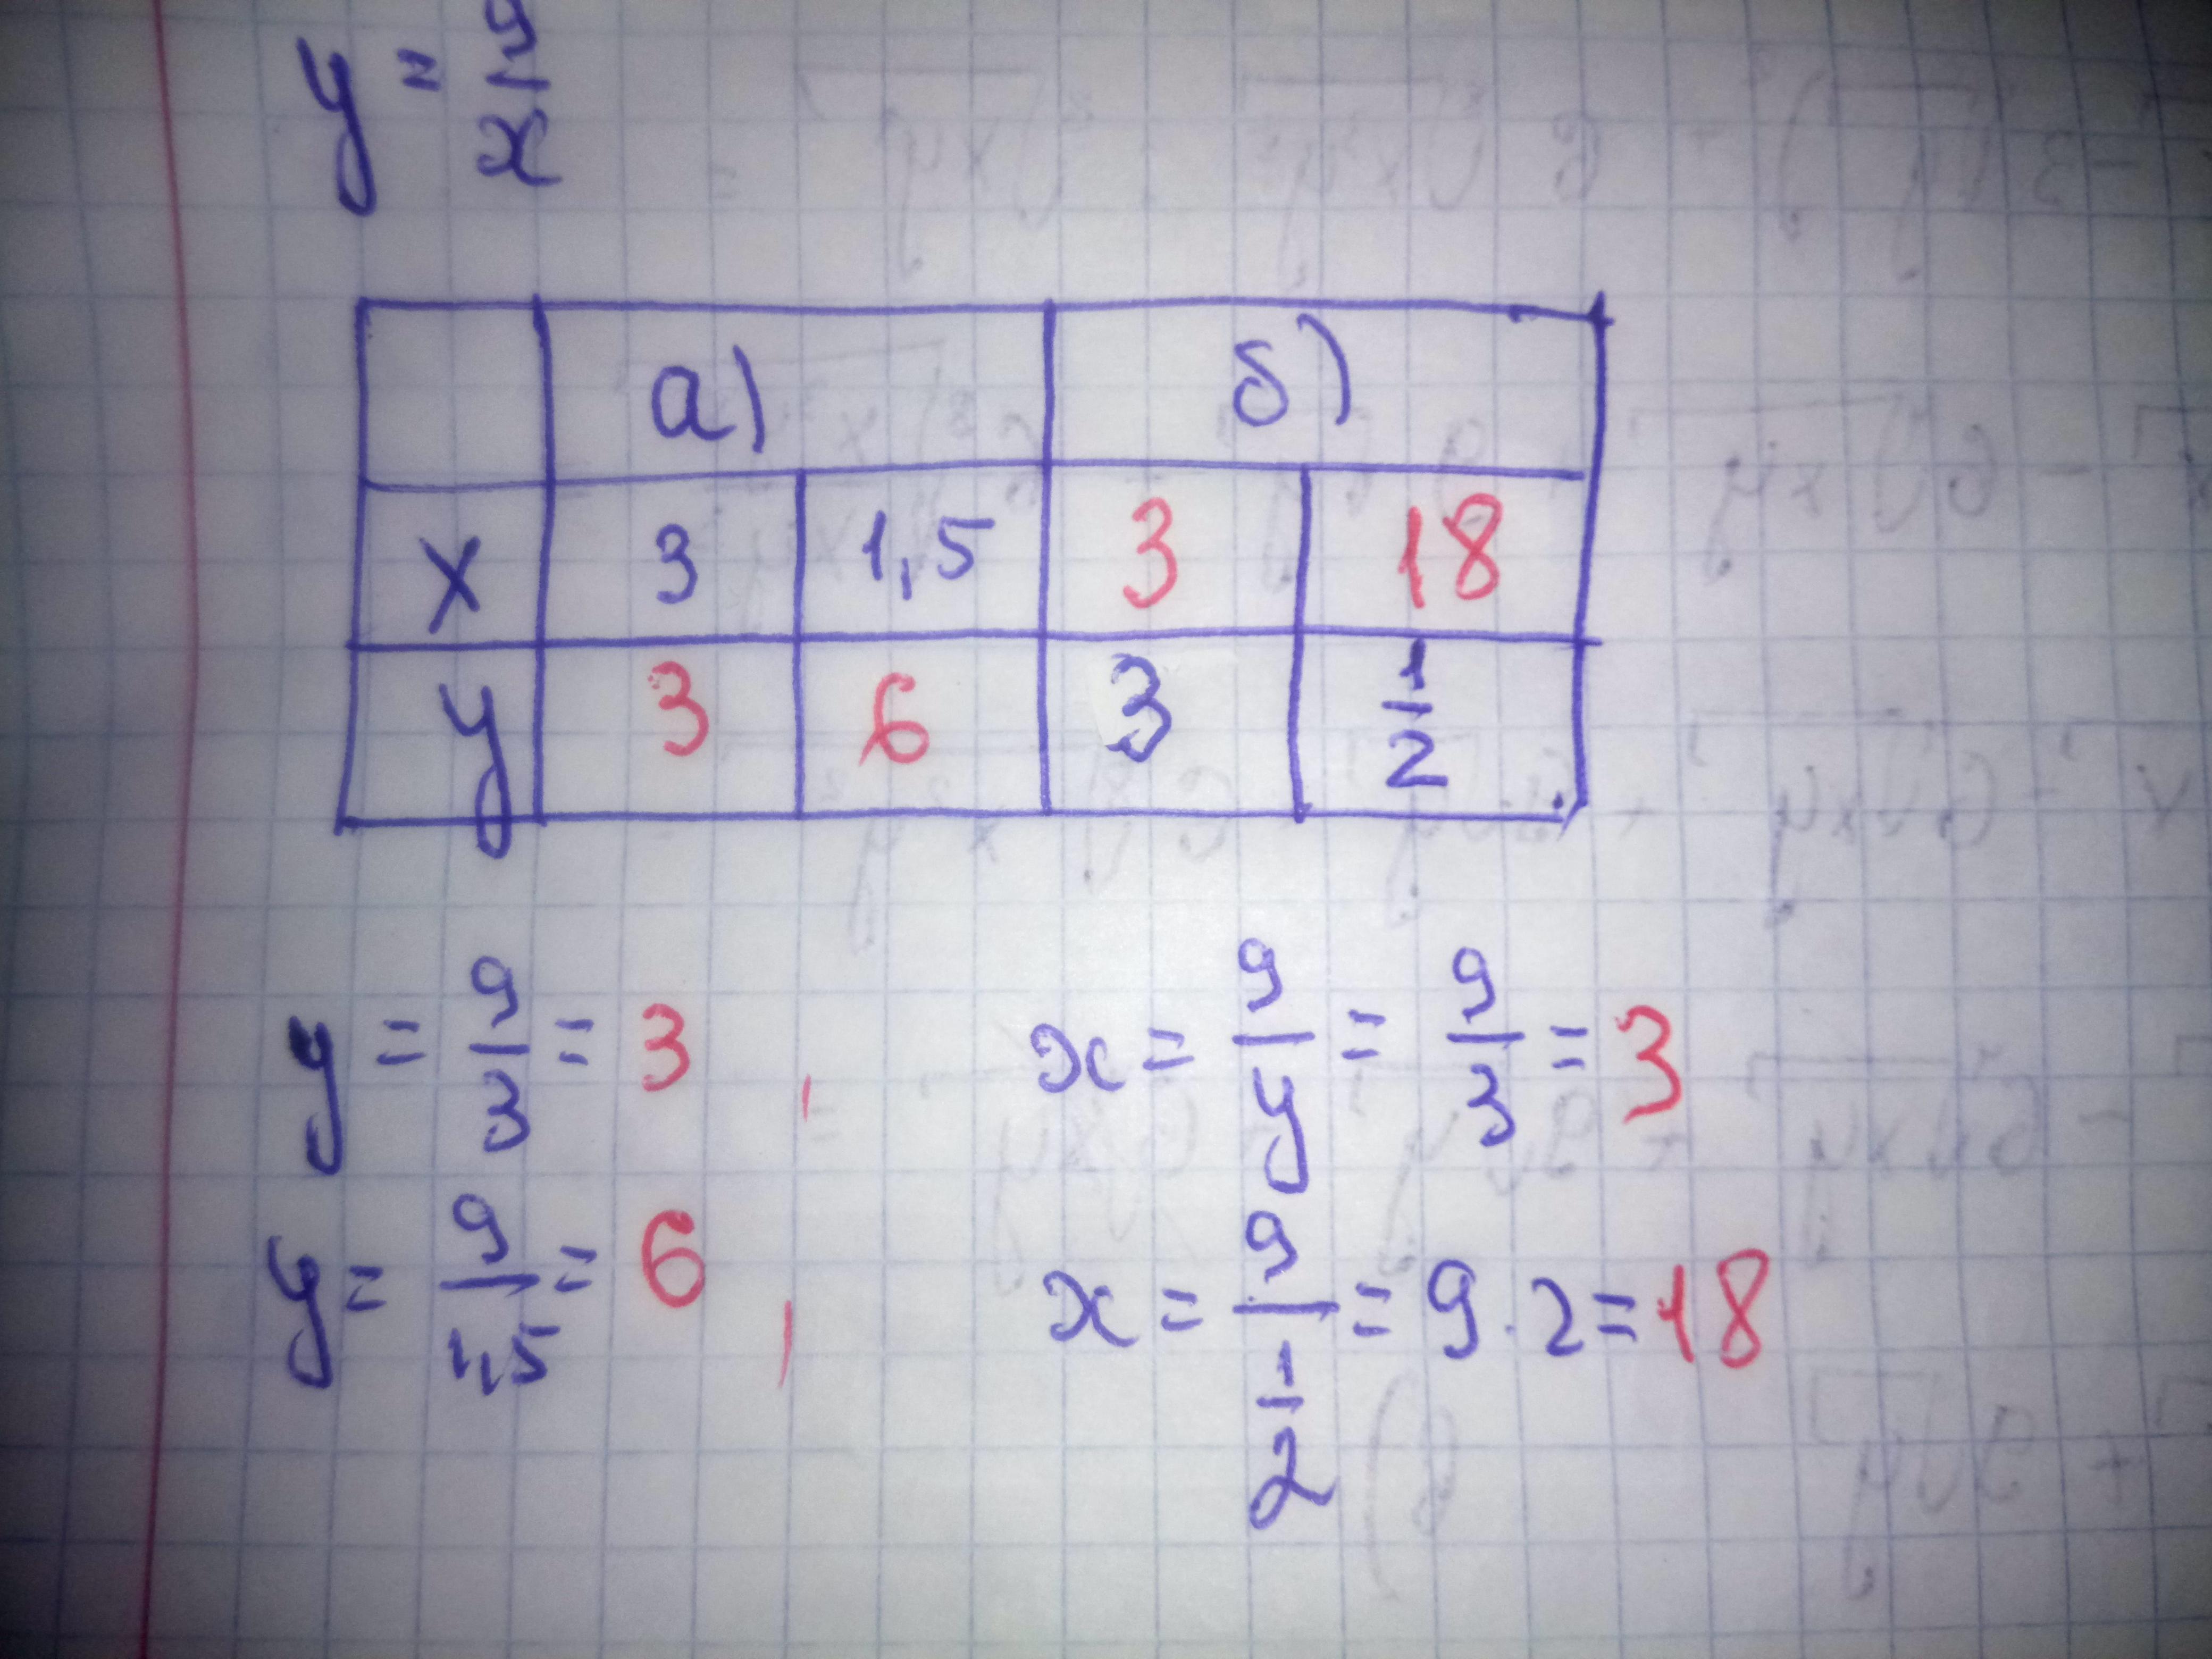 y = 9/x
а) б)
x 3 1,5 3 18
y 3 6 3 1/2
y = 9/3 = 3, x = 9/y = 9/3 = 3
y = 9/1,5 = 6, x = 9/(1/2) = 9 · 2 = 18